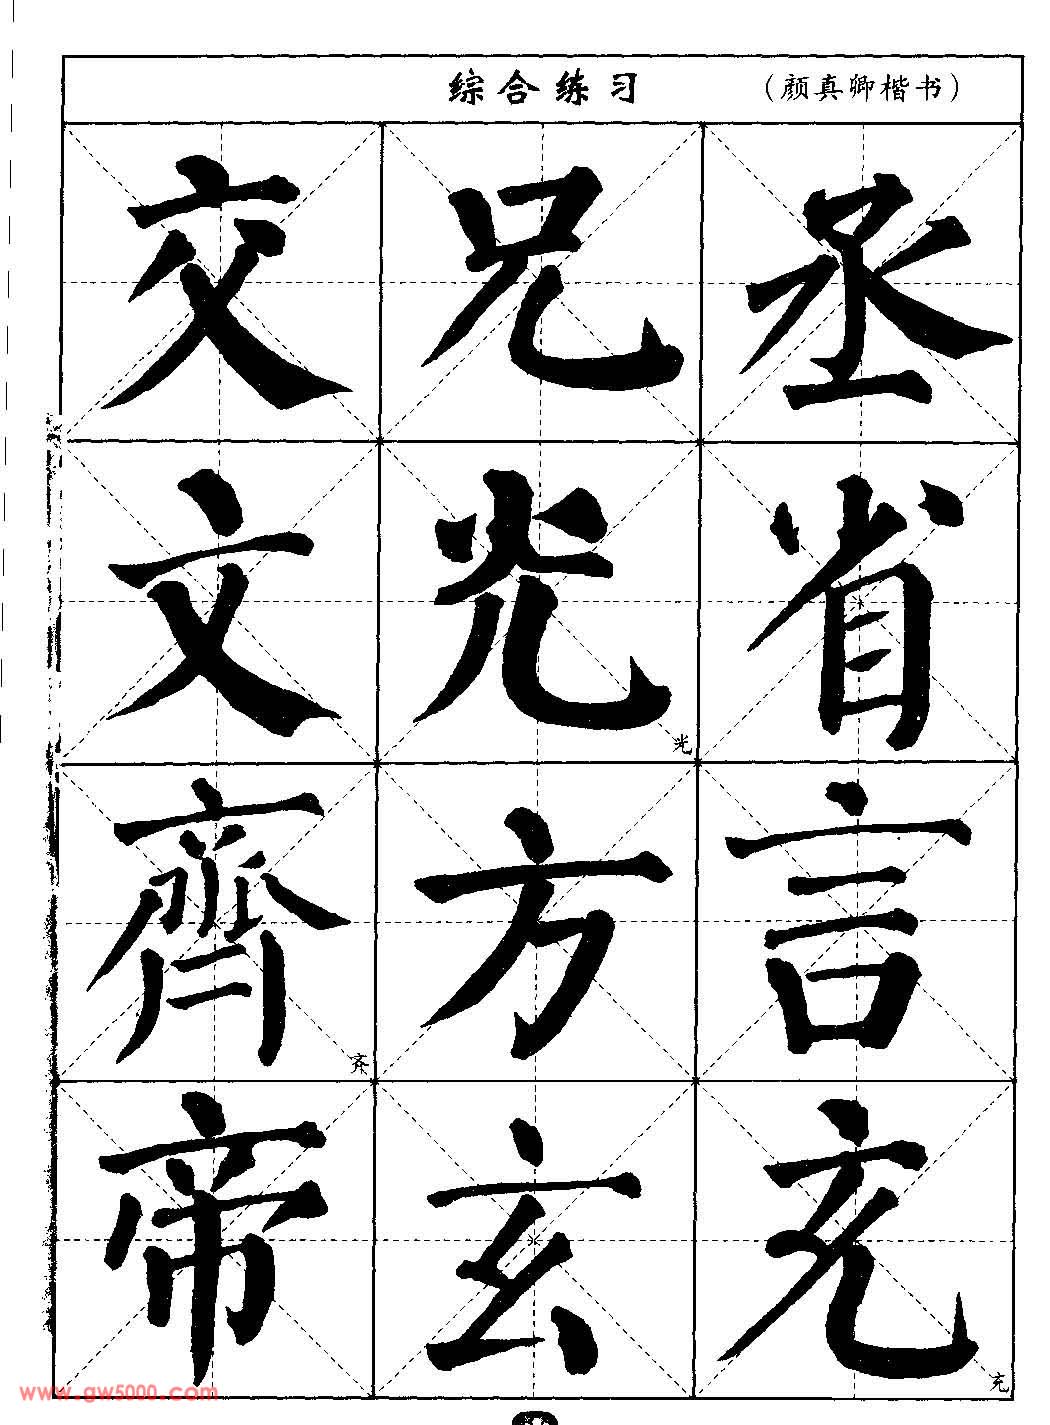 综合练习 （颜真卿楷书）
交 兄 丞
文 光 省
光
齊 方 言
齐
帝 玄 充
充
www.gw5000.com